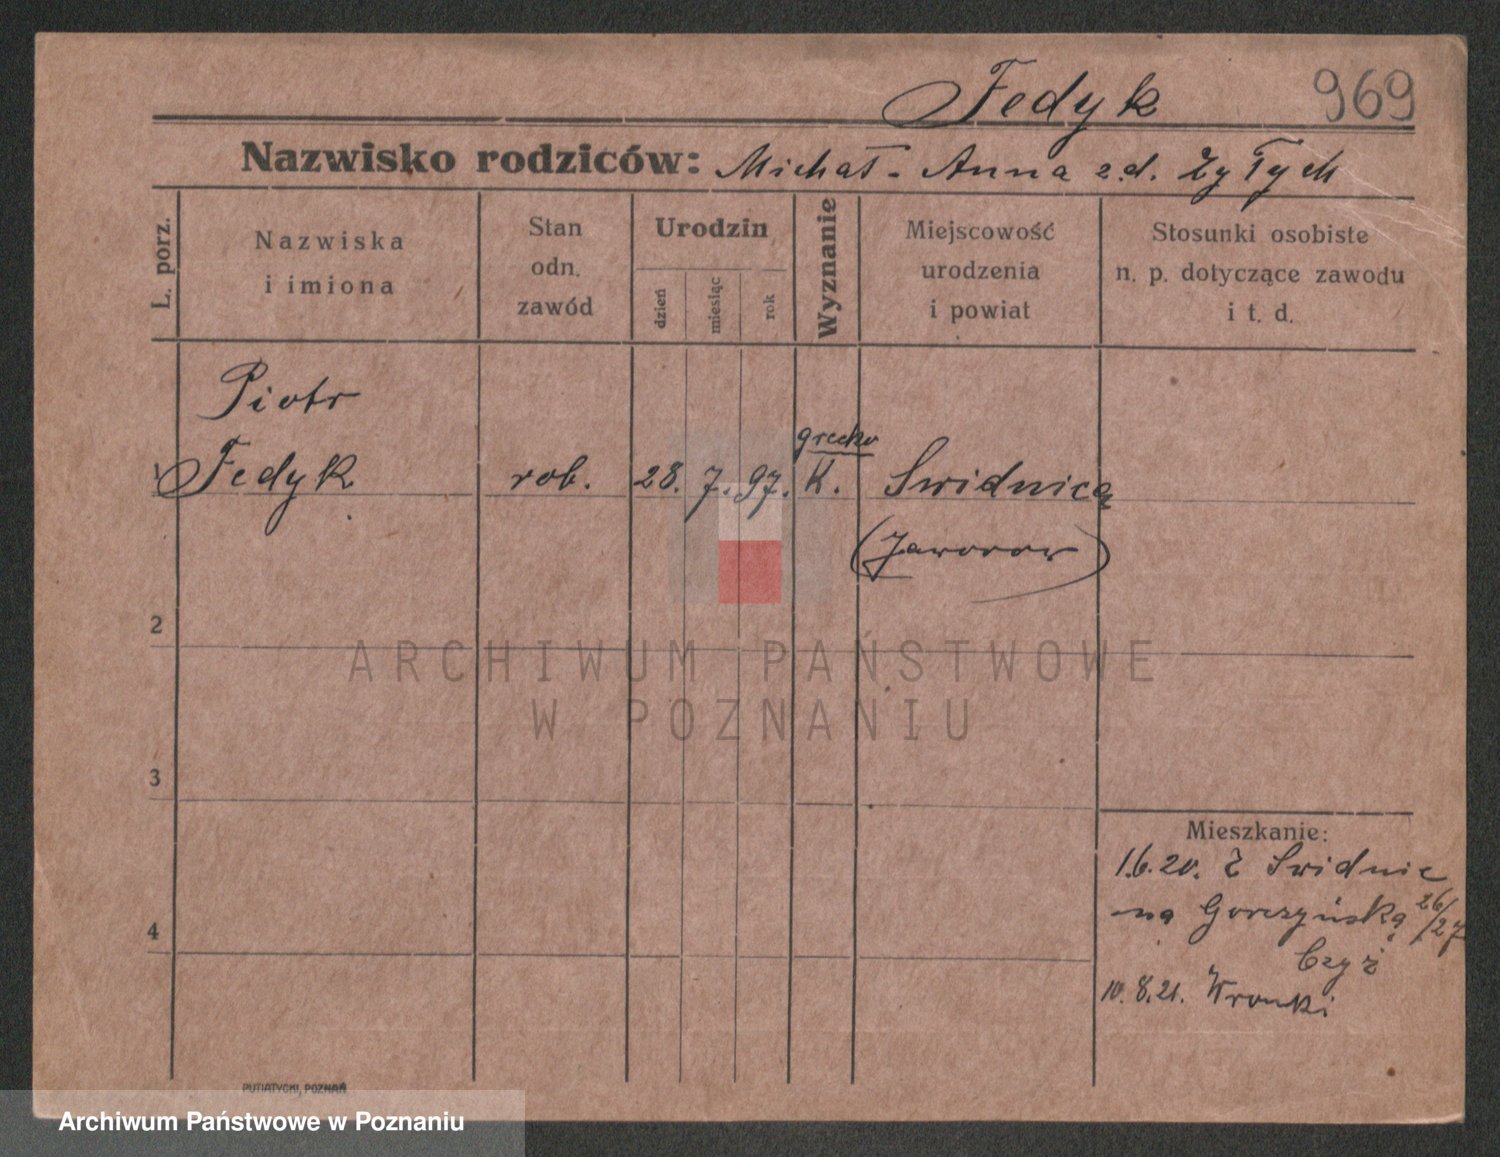 Fedyk 969
Nazwisko rodziców: Michał - Anna z d. Zyłych
L. porz.
Nazwiska
i imiona
Stan
odn.
zawód
Urodzin
dzień
miesiąc
rok
Wyznanie
Miejscowość
urodzenia
i powiat
Stosunki osobiste
n. p. dotyczące zawodu
i t. d.
Piotr
grecko
1 Fedyk rob. 28. 7. 97. K. Swidnica
(Jaworow)
2
ARCHIWUM PAŃSTWOWE
W POZNANIU
3
Mieszkanie:
1.6.20. Z Swidnic
na Gorczyńską 26/27
4
Czyż
10.8.21. Wronki
PUTIATYCKI, POZNAŃ
Archiwum Państwowe w Poznaniu